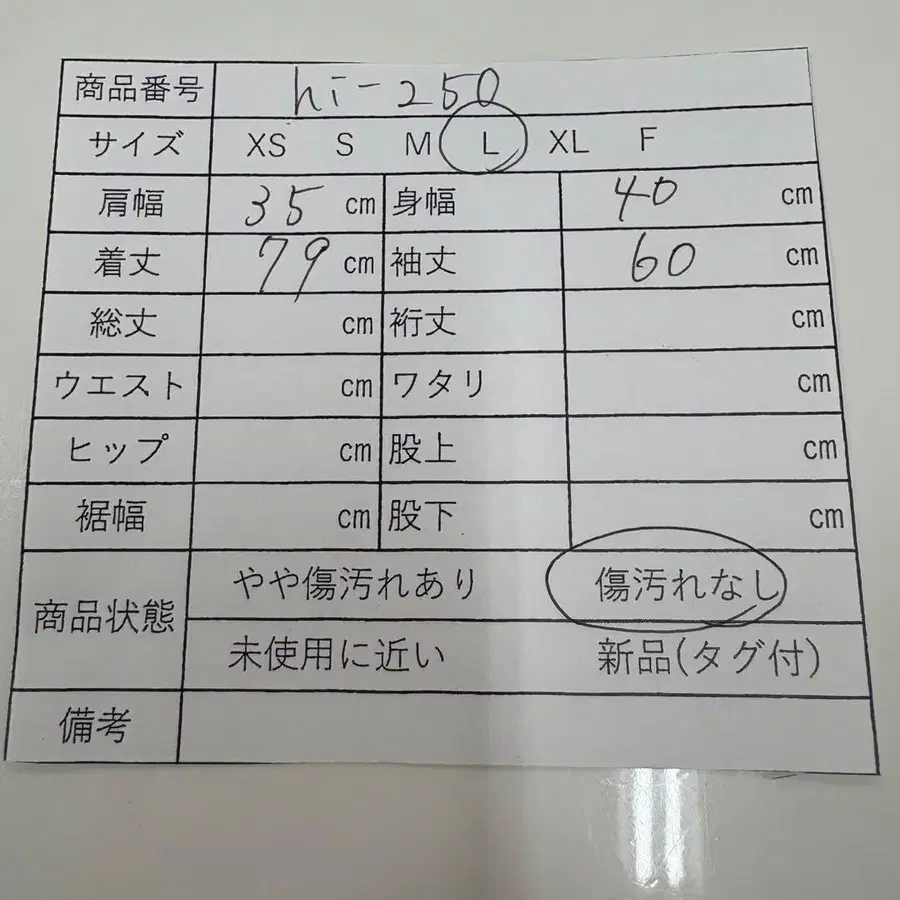 商品番号 hi-250
サイズ XS S M L XL F
肩幅 35 cm 身幅 40 cm
着丈 79 cm 袖丈 60 cm
総丈 cm 裄丈 cm
ウエスト cm ワタリ cm
ヒップ cm 股上 cm
裾幅 cm 股下 cm
商品状態 やや傷汚れあり 傷汚れなし
未使用に近い 新品(タグ付)
備考